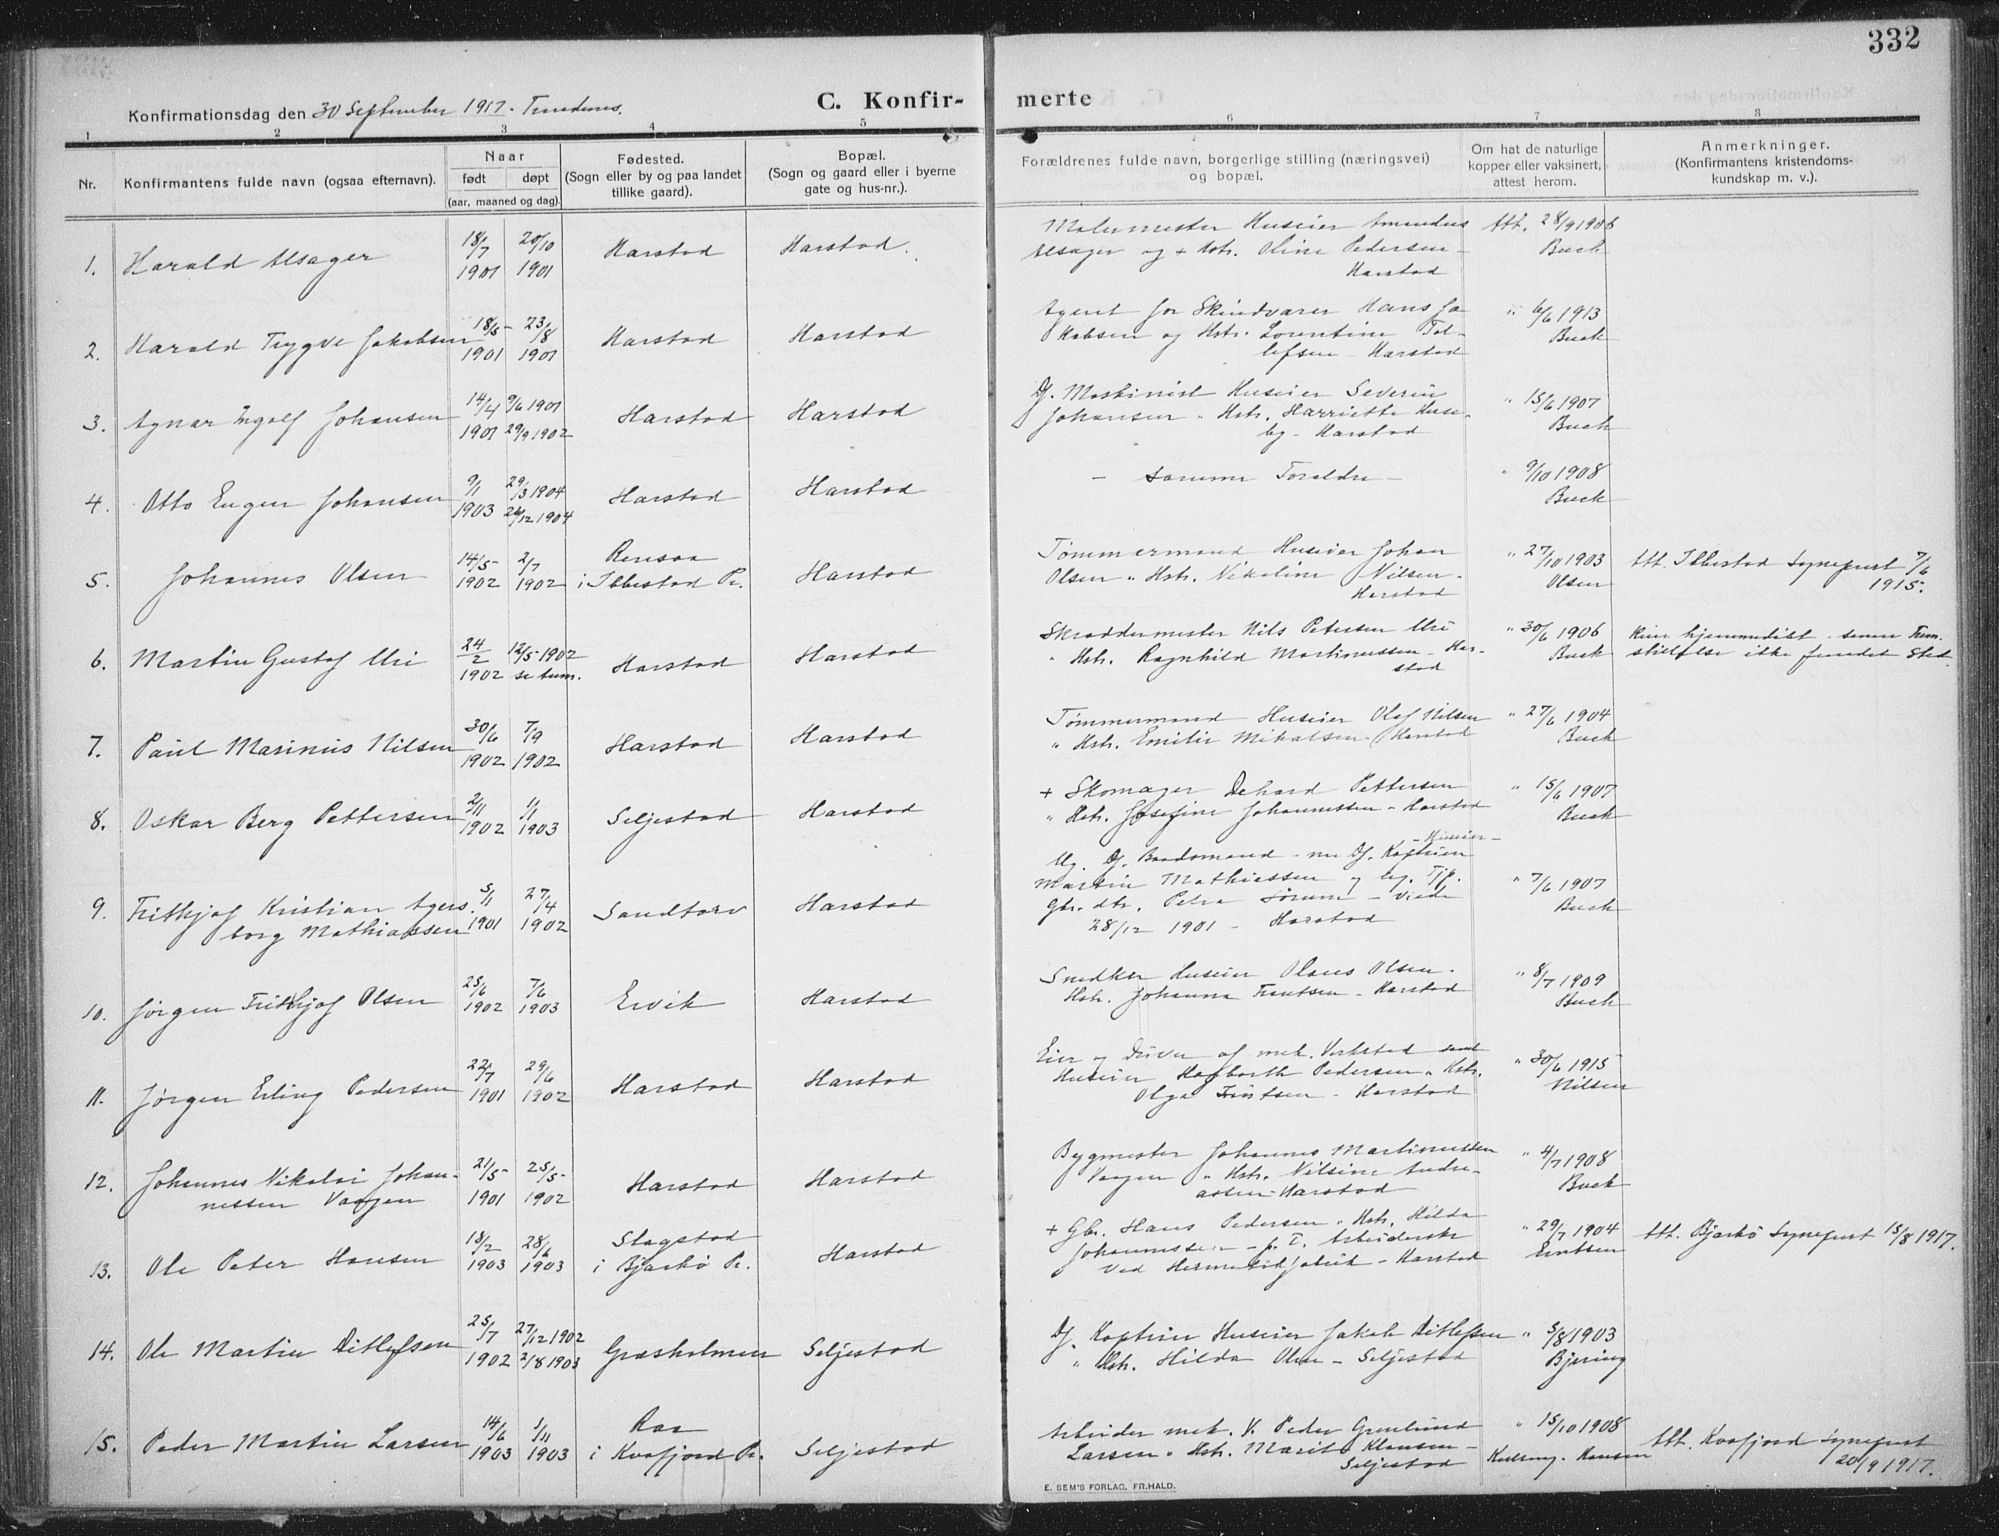 332
Konfirmationsdag den 30 September 1917. Trondenes.
C. Konfirmerte
1 2 3 4 5 6 7 8
Nr.
Konfirmantens fulde navn (ogsaa efternavn).
Naar
født døpt
(aar, maaned og dag)
Fødested.
(Sogn eller by og paa landet
tillike gaard).
Bopæl.
(Sogn og gaard eller i byerne
gate og hus-nr.).
Forældrenes fulde navn, borgerlige stilling (næringsvei)
og bopæl.
Om hat de naturlige
kopper eller vaksinert,
attest herom.
Anmerkninger.
(Konfirmantens kristendoms-
kundskap m. v.).
1. Harald Alsager 18/7 1901 20/10 1901 Harstad Harstad.
Malermester Huseier Amandus
Alsager og + Hstr. Oline Pedersen -
Harstad
Att. 28/9 1906
Buck
2. Harald Trygve Jakobsen 18/5 1901 23/8 1901 Harstad Harstad
Agent for Skindvarer Hans Ja-
kobsen og Hstr. Lorentine Tol-
lefsen - Harstad
" 6/6 1913
Buck
3. Agnar Ingolf Johansen 14/4 1901 9/6 1901 29/9 1902 Harstad Harstad
Df. Maskinist Huseier Severin
Johansen " Hstr. Harriette Huse-
by - Harstad
" 15/6 1907
Buck
4. Otto Eugen Johansen 9/1 1903 29/3 1904 26/12 1904 Harstad Harstad
- samme Foraldre -
" 9/10 1908
Buck
5. Johannes Olsen 14/5 1902 2/7 1902 Rensaa
i Ibbestad Pr. Harstad
Tømmermand Huseier Johan
Olsen " Hstr. Nikoline Nilsen -
Harstad
" 27/10 1903
Olsen
Att. Ibbestad Sognepræst 7/6
1915.
6. Martin Gustaf Uri 24/2 1902 12/5 1902
se anm. Harstad Harstad
Skræddermester Nils Petersen Uri
" Hstr. Ragnhild Martinussen - Har-
stad
" 30/6 1906
Buck
kun hjemmedøbt - senere Frem-
stillelse ikke fundet Sted.
7. Paul Marinius Nilsen 30/6 1902 7/9 1902 Harstad Harstad
Tømmermand Huseier Olaf Nilsen
" Hstr. Emilie Mikalsen - Harstad
" 27/6 1904
Buck
8. Oskar Berg Pettersen 2/11 1902 1/1 1903 Seljestad Harstad
+ Skomager Dehard Pettersen
" Hstr. Josefine Johannessen - Harstad
" 15/6 1907
Buck
9. Frithjof Kristian Agers-
borg Mathiassen 5/11 1901 27/4 1902 Sandtorv Harstad
- Huseier -
Ug. Df. Baadsmand - nu Df. Kaptein
Martin Mathiassen og ug. Tjp.
Gbr. dtr. Petra Sørum - viede
28/12 1901 - Harstad
" 7/6 1907
Buck
10. Jørgen Frithjof Olsen 25/6 1902 7/6 1903 Ervik Harstad
Snedker Huseier Olaus Olsen -
Hstr. Johanna Frantsen - Harstad
" 8/7 1909
Buck
11. Jørgen Erling Pedersen 22/7 1901 29/6 1902 Harstad Harstad
Eier og Driver af mek. Verksted samt
Huseier Hagbarth Pedersen " Hstr.
Olga Frantsen - Harstad
" 30/6 1915
Nilsen
12. Johannes Nikolai Johan-
nessen Vaagen 21/5 1901 25/5 1902 Harstad Harstad
Bygmester Johannes Martinussen
Vaagen " Hstr. Nilsine Andre-
assen - Harstad
" 4/7 1908
Buck
13. Ole Peter Hansen 18/2 1903 28/6 1903 Slagstad
i Bjarkø Pr. Harstad
+ Gbr. Hans Pedersen " Hstr. Hilda
Johannessen - p. T. Arbeiderske
ved Hermetikfabrik - Harstad
" 29/7 1904
Att. Bjarkø Sognepræst 15/8 1917.
14. Ole Martin Ditlefsen 25/7 1902 27/12 1902 2/8 1903 Grasholmen Seljestad
Df. Kaptein Huseier Jakob Ditlefsen
" Hstr. Hilda Olsen - Seljestad
" 5/8 1903
Bjering
15. Peder Martin Larsen 14/6 1903 1/11 1903 Raa
i Kvæfjord Pr. Seljestad
Arbeider mek. V. Peder Grønlund
Larsen " Hstr. Marit Klausen -
Seljestad
" 15/10 1908
Hansen
Att. Kvæfjord Sognepræst
20/9 1917.
E. SEM'S FORLAG, FR.HALD.